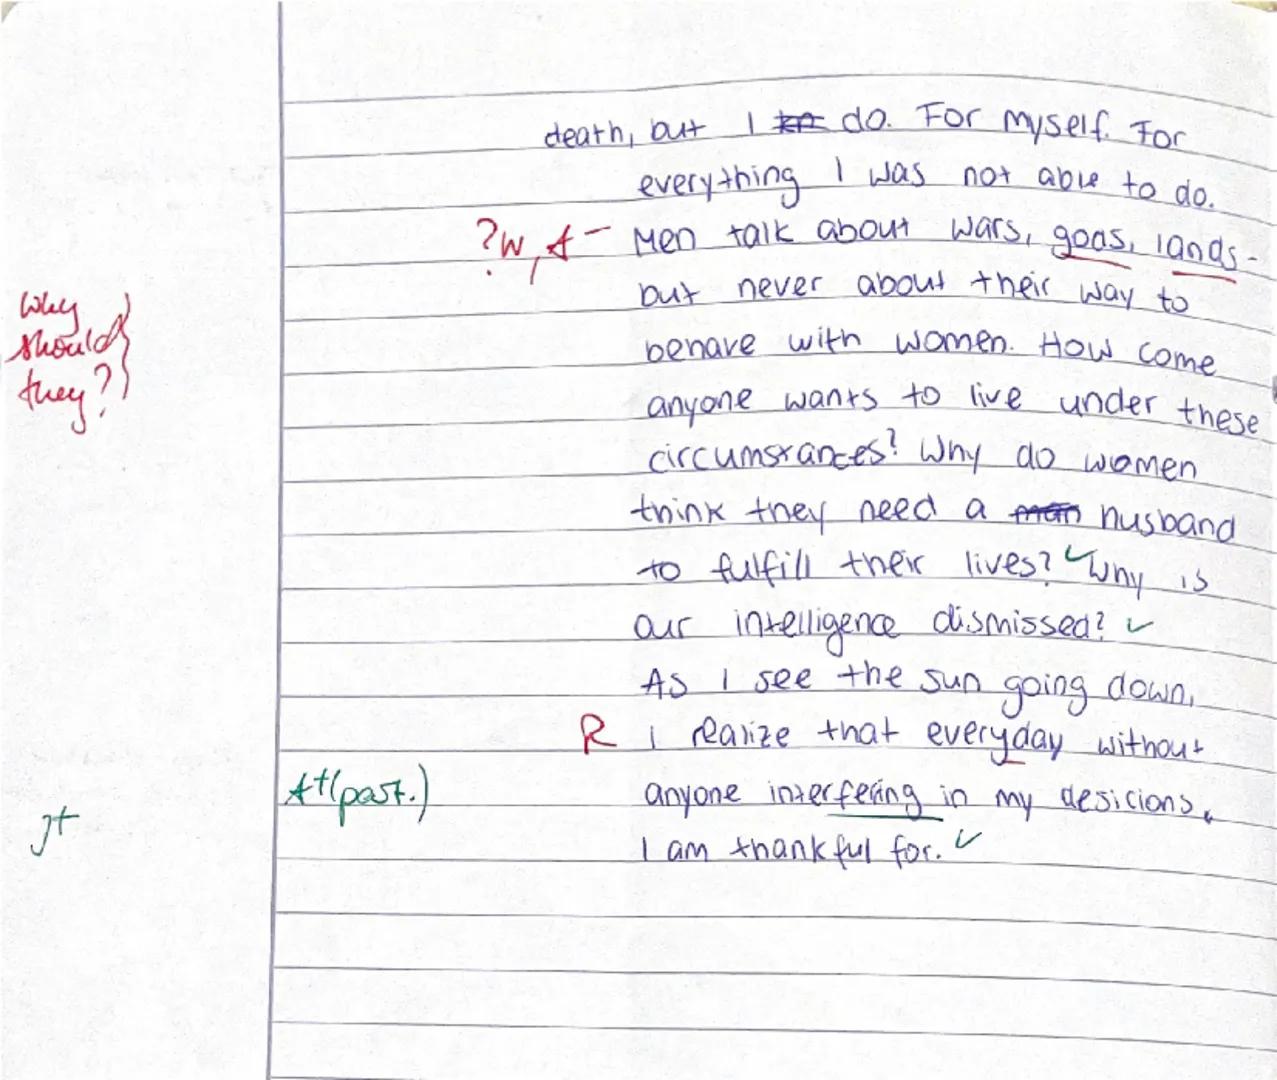 death, but I do. For myself. For
everything I was not able to do.
?W, A- Men talk about wars, goas, lands -
but never about their way to
Why should they?
behave with women. How come
anyone wants to live under these
circumstances? Why do women
think they need a man husband
to fulfill their lives? Why is
our intelligence dismissed?
As I see the sun going down,
R I realize that everyday without
A+(past.) anyone interfering in my desicions,
j+
I am thankful for.